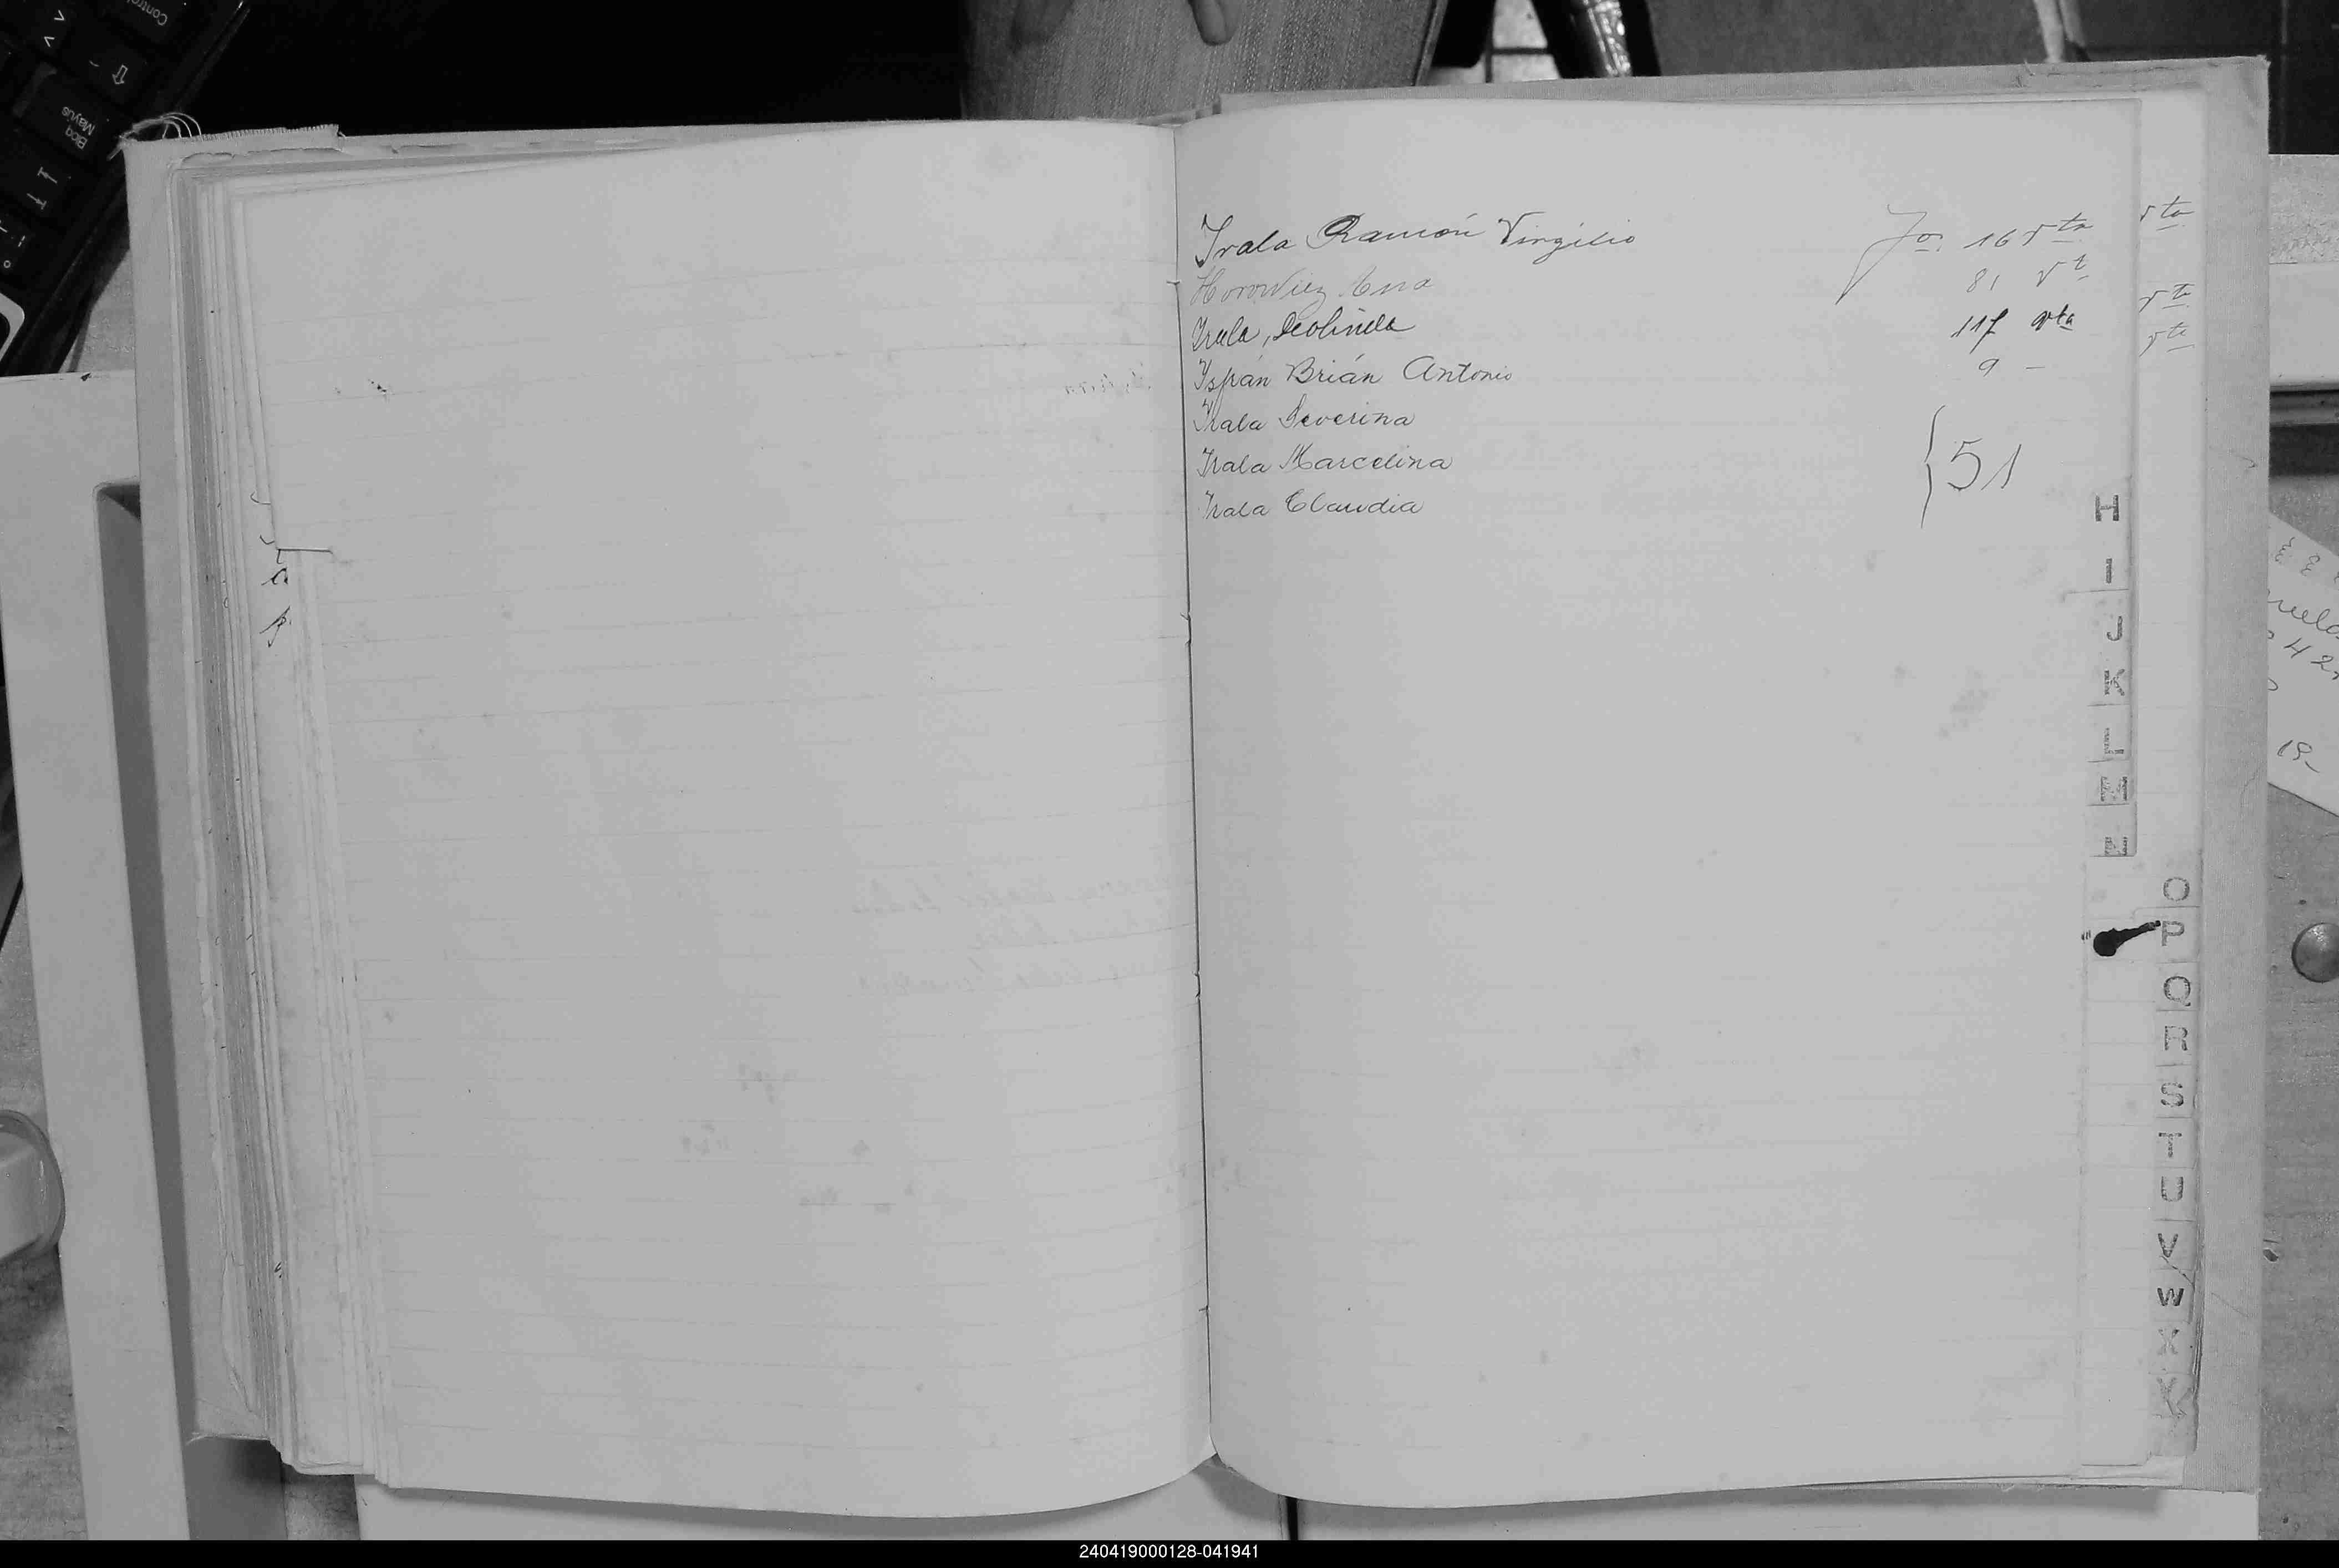 Irala Ramón Virgilio Fo. 16 vta
Horowiez Ana 81 vta
Irala, Deolinda 117 vta
Ispán Brián Antonio 9 -
Irala Severina
Irala Marcelina 51
Irala Claudia
vta
vta
vta
H
I
J
K
L
O
P
Q
R
S
T
U
V
W
X
Y
Control
Bloq
Mayus
19-
240419000128-041941